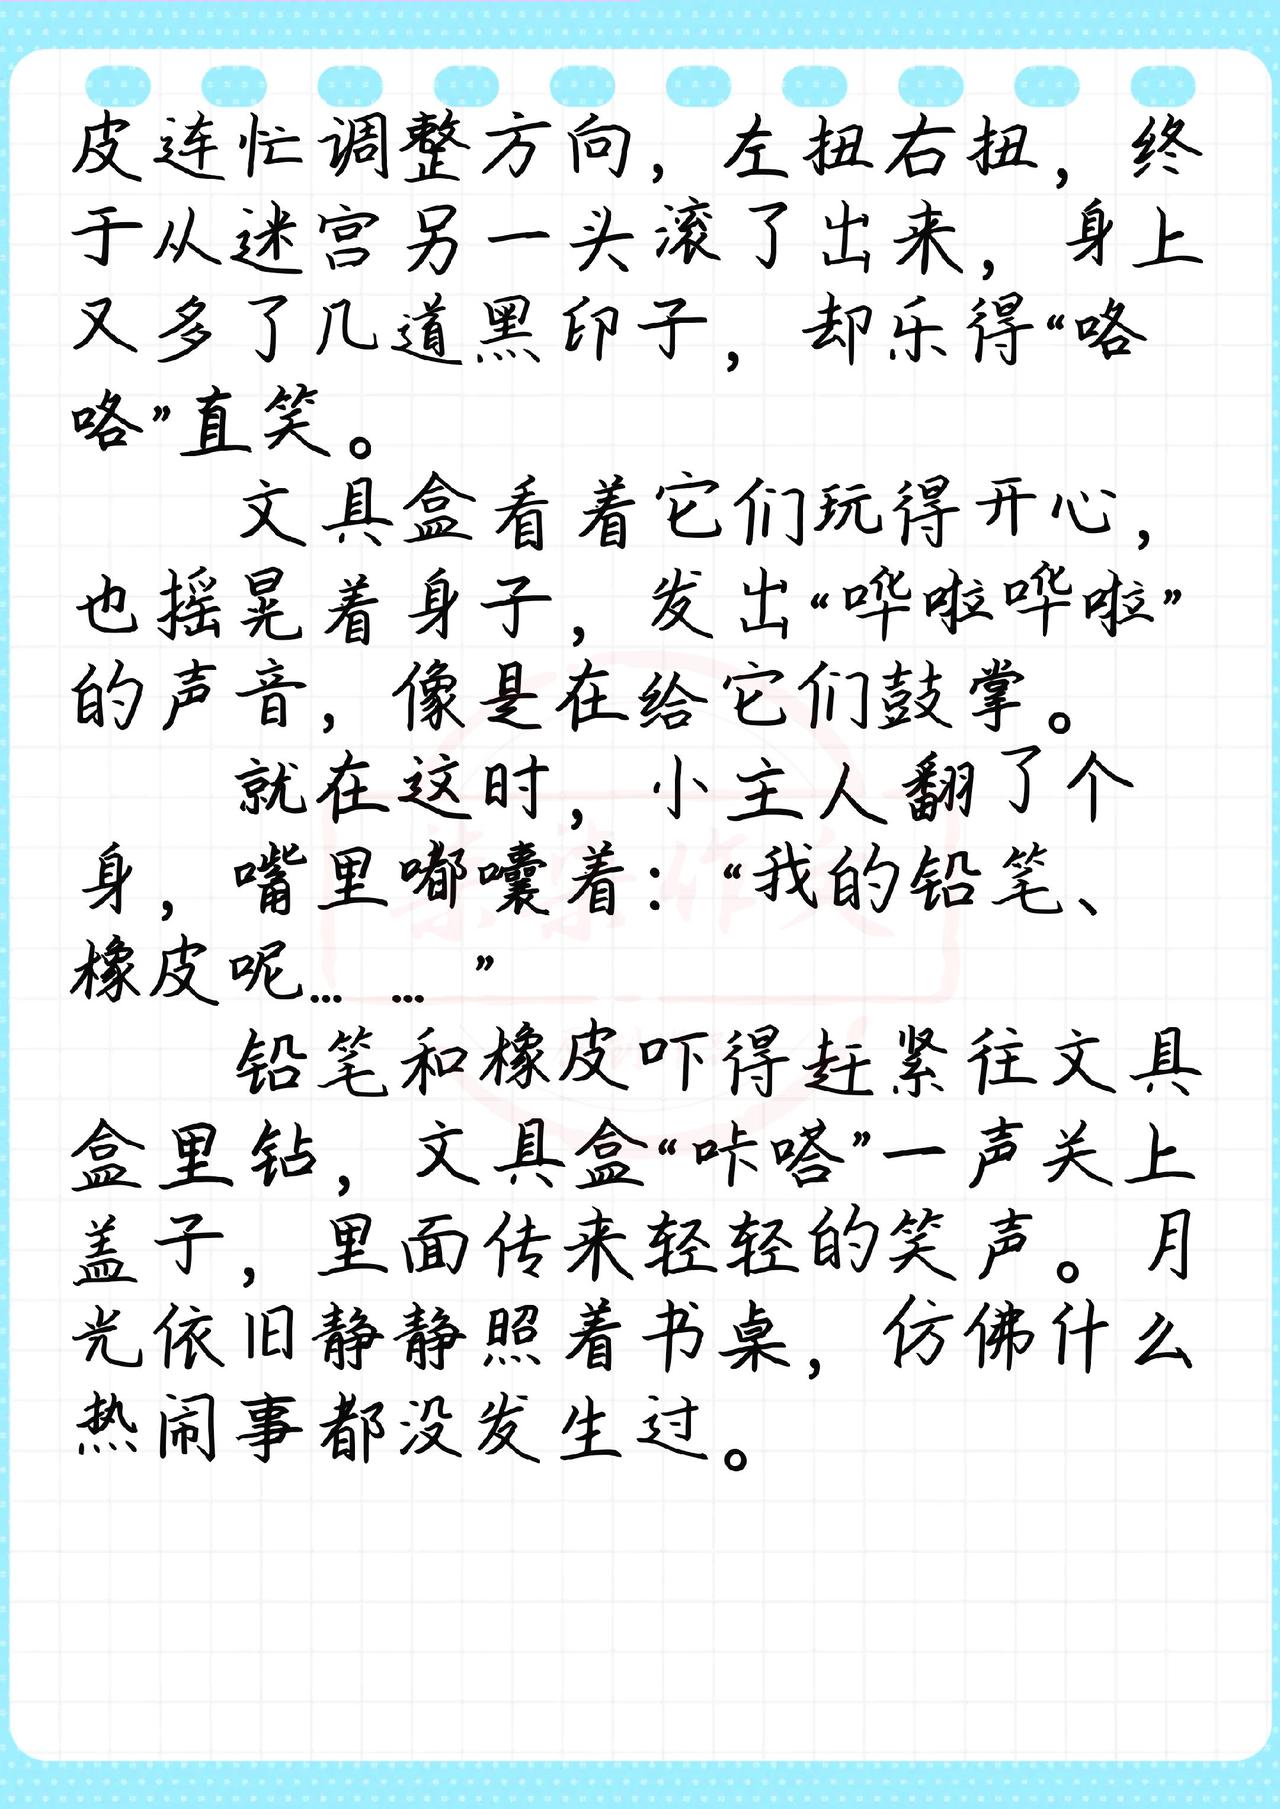 皮连忙调整方向，左扭右扭，终
于从迷宫另一头滚了出来，身上
又多了几道黑印子，却乐得“咯
咯”直笑。
文具盒看着它们玩得开心，
也摇晃着身子，发出“哗啦哗啦”
的声音，像是在给它们鼓掌。
就在这时，小主人翻了个
身，嘴里嘟囔着：“我的铅笔、
橡皮呢……”
铅笔和橡皮吓得赶紧往文具
盒里钻，文具盒“咔嗒”一声关上
盖子，里面传来轻轻的笑声。月
光依旧静静照着书桌，仿佛什么
热闹事都没发生过。